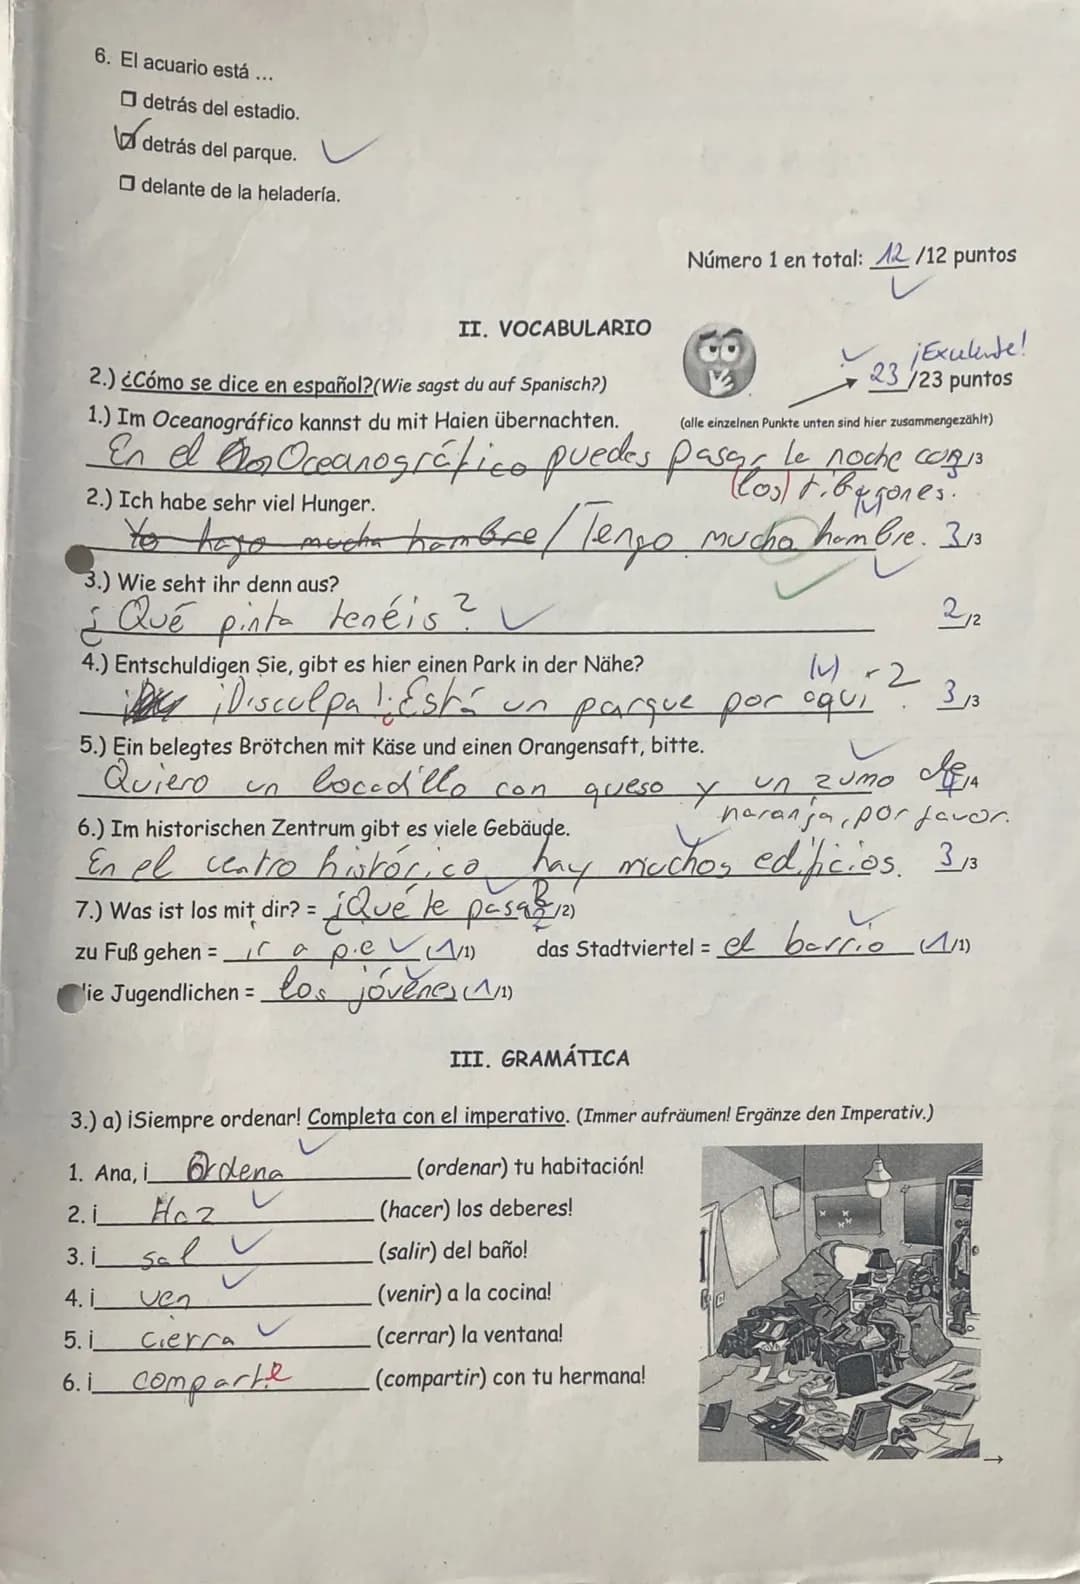 6. El acuario está ...
detrás del estadio.
detrás del parque.
delante de la heladería.
Número 1 en total: 12 /12 puntos
II. VOCABULARIO
¡Exelente!
2.) ¿Cómo se dice en español?(Wie sagst du auf Spanisch?)
23 /23 puntos
1.) Im Oceanográfico kannst du mit Haien übernachten.
(alle einzelnen Punkte unten sind hier zusammengezählt)
En el Oceanográfico puedes pasar la noche con /3
(los) tiburones.
2.) Ich habe sehr viel Hunger.
Yo hago mucha hambre / Tengo mucha hambre. 3/3
3.) Wie seht ihr denn aus?
¿Qué pinta tenéis? 2/2
4.) Entschuldigen Sie, gibt es hier einen Park in der Nähe?
¡Disculpa! ¿Está un parque por aquí? 3/3
5.) Ein belegtes Brötchen mit Käse und einen Orangensaft, bitte.
Quiero un bocadillo con queso y un zumo de /4
naranja, por favor.
6.) Im historischen Zentrum gibt es viele Gebäude.
En el centro histórico hay muchos edificios. 3/3
7.) Was ist los mit dir? = ¿Qué te pasa? 2/2)
zu Fuß gehen = ir a pie (1/1) das Stadtviertel = el barrio (1/1)
die Jugendlichen = los jóvenes (1/1)
III. GRAMÁTICA
3.) a) ¡Siempre ordenar! Completa con el imperativo. (Immer aufräumen! Ergänze den Imperativ.)
1. Ana, ¡ Ordena (ordenar) tu habitación!
2. ¡ Haz (hacer) los deberes!
3. ¡ sal (salir) del baño!
4. ¡ ven (venir) a la cocina!
5. ¡ cierra (cerrar) la ventana!
6. ¡ comparte (compartir) con tu hermana!